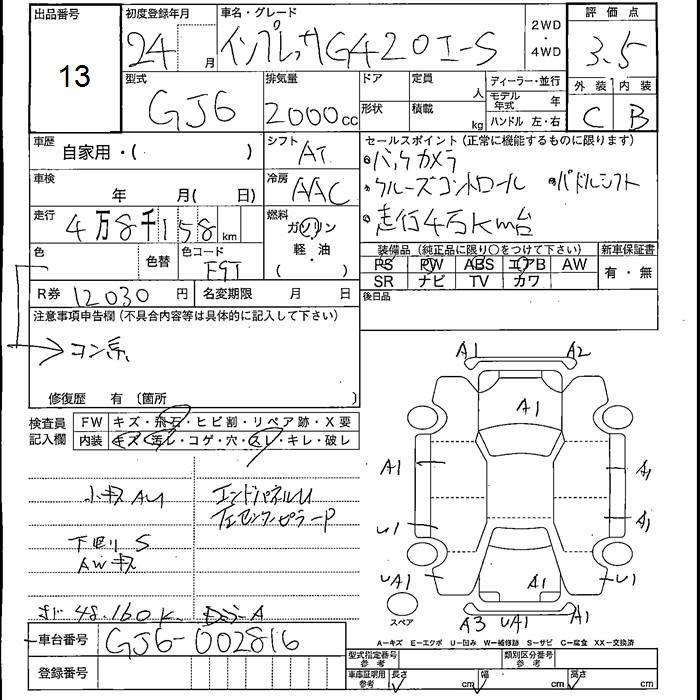 出品番号 初度登録年月 車名・グレード 2WD・4WD 評価点
13 24月 インプレッサG4 2.0I-S 3.5
型式 排気量 ドア 定員 人 ディーラー・並行 外装 内装
GJ6 2000cc 形状 積載 kg モデル年式 年 ハンドル 左・右 C B
車歴 自家用・( ) シフト AT セールスポイント (正常に機能するものに限ります)
・バックカメラ
車検 年 月( 日) 冷房 AAC ・クルーズコントロール ・パドルシフト
走行 4万8千158km 燃料 ガソリン・軽油 ( ) ・走行4万km台
色 色替 色コード 装備品 (純正品に限り○をつけて下さい) 新車保証書
PS PW ABS エアB AW 有・無
SR ナビ TV カワ
R券 12030円 名変期限 月 日 後日品
注意事項申告欄 (不具合内容等は具体的に記入して下さい)
→コン系
修復歴 有 (箇所 )
検査員記入欄 FW キズ・飛石・ヒビ割・リペア跡・X要
内装 キズ・汚レ・コゲ・穴・スレ・キレ・破レ
A1 A2
A1
A1 A1
U1 A1
UA1 A1 U1
A3 UA1 A1
スペア
小キズ AU エンドパネルU
左センターピラーP
下廻り S
AWキズ
48,160K
A-キズ E-エクボ U-凹み W-補修跡 S-サビ C-腐食 XX-交換済
車台番号 GJ6-002816
型式指定番号 参考 類別区分番号 参考
登録番号 車庫証明用 参考 長さ cm 幅 cm 高さ cm